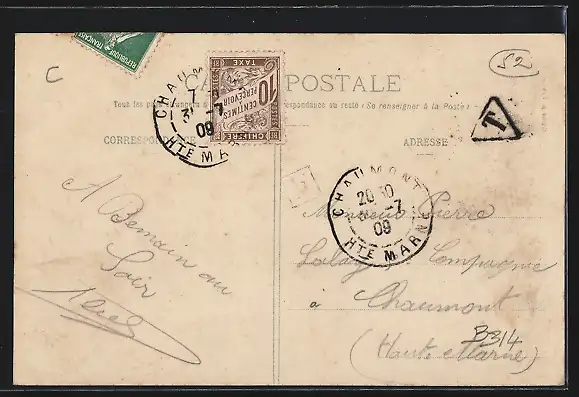 REPUBLIQUE FRANÇAISE
52
C
CARTE POSTALE
Tous les pays étrangers correspondance au recto (Se renseigner à la Poste)
CORRESPONDANCE
ADRESSE
CHAUMONT
7
31 -7
09
HTE MARNE
CHIFFRE
TAXE
10
CENTIMES
À PERCEVOIR
T
CHAUMONT
20 30
-7
09
HTE MARNE
A Demain au
Soir
Monsieur Pierre
Compagnie
à Chaumont
B314
(Haute Marne)